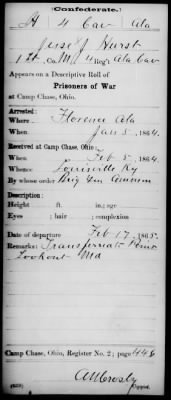 Confederate.
H 4 Cav Ala
Jesse J Hurst
1 Lt, Co. M, 4 Reg't Ala Cav
Appears on a Descriptive Roll of
Prisoners of War
at Camp Chase, Ohio.
Arrested:
Where Florence Ala
When Jan 5, 1864.
Received at Camp Chase, Ohio:
When Feb 5, 1864.
Whence Louisville Ky
By whose order Brig Gen
Description:
Height ft. in.; age
Eyes ; hair ; complexion
Date of departure Feb 17, 1865.
Remarks: Transferred to Point
Lookout Md
Camp Chase, Ohio, Register No. 2; page 446
A W Crosby
Copyist.